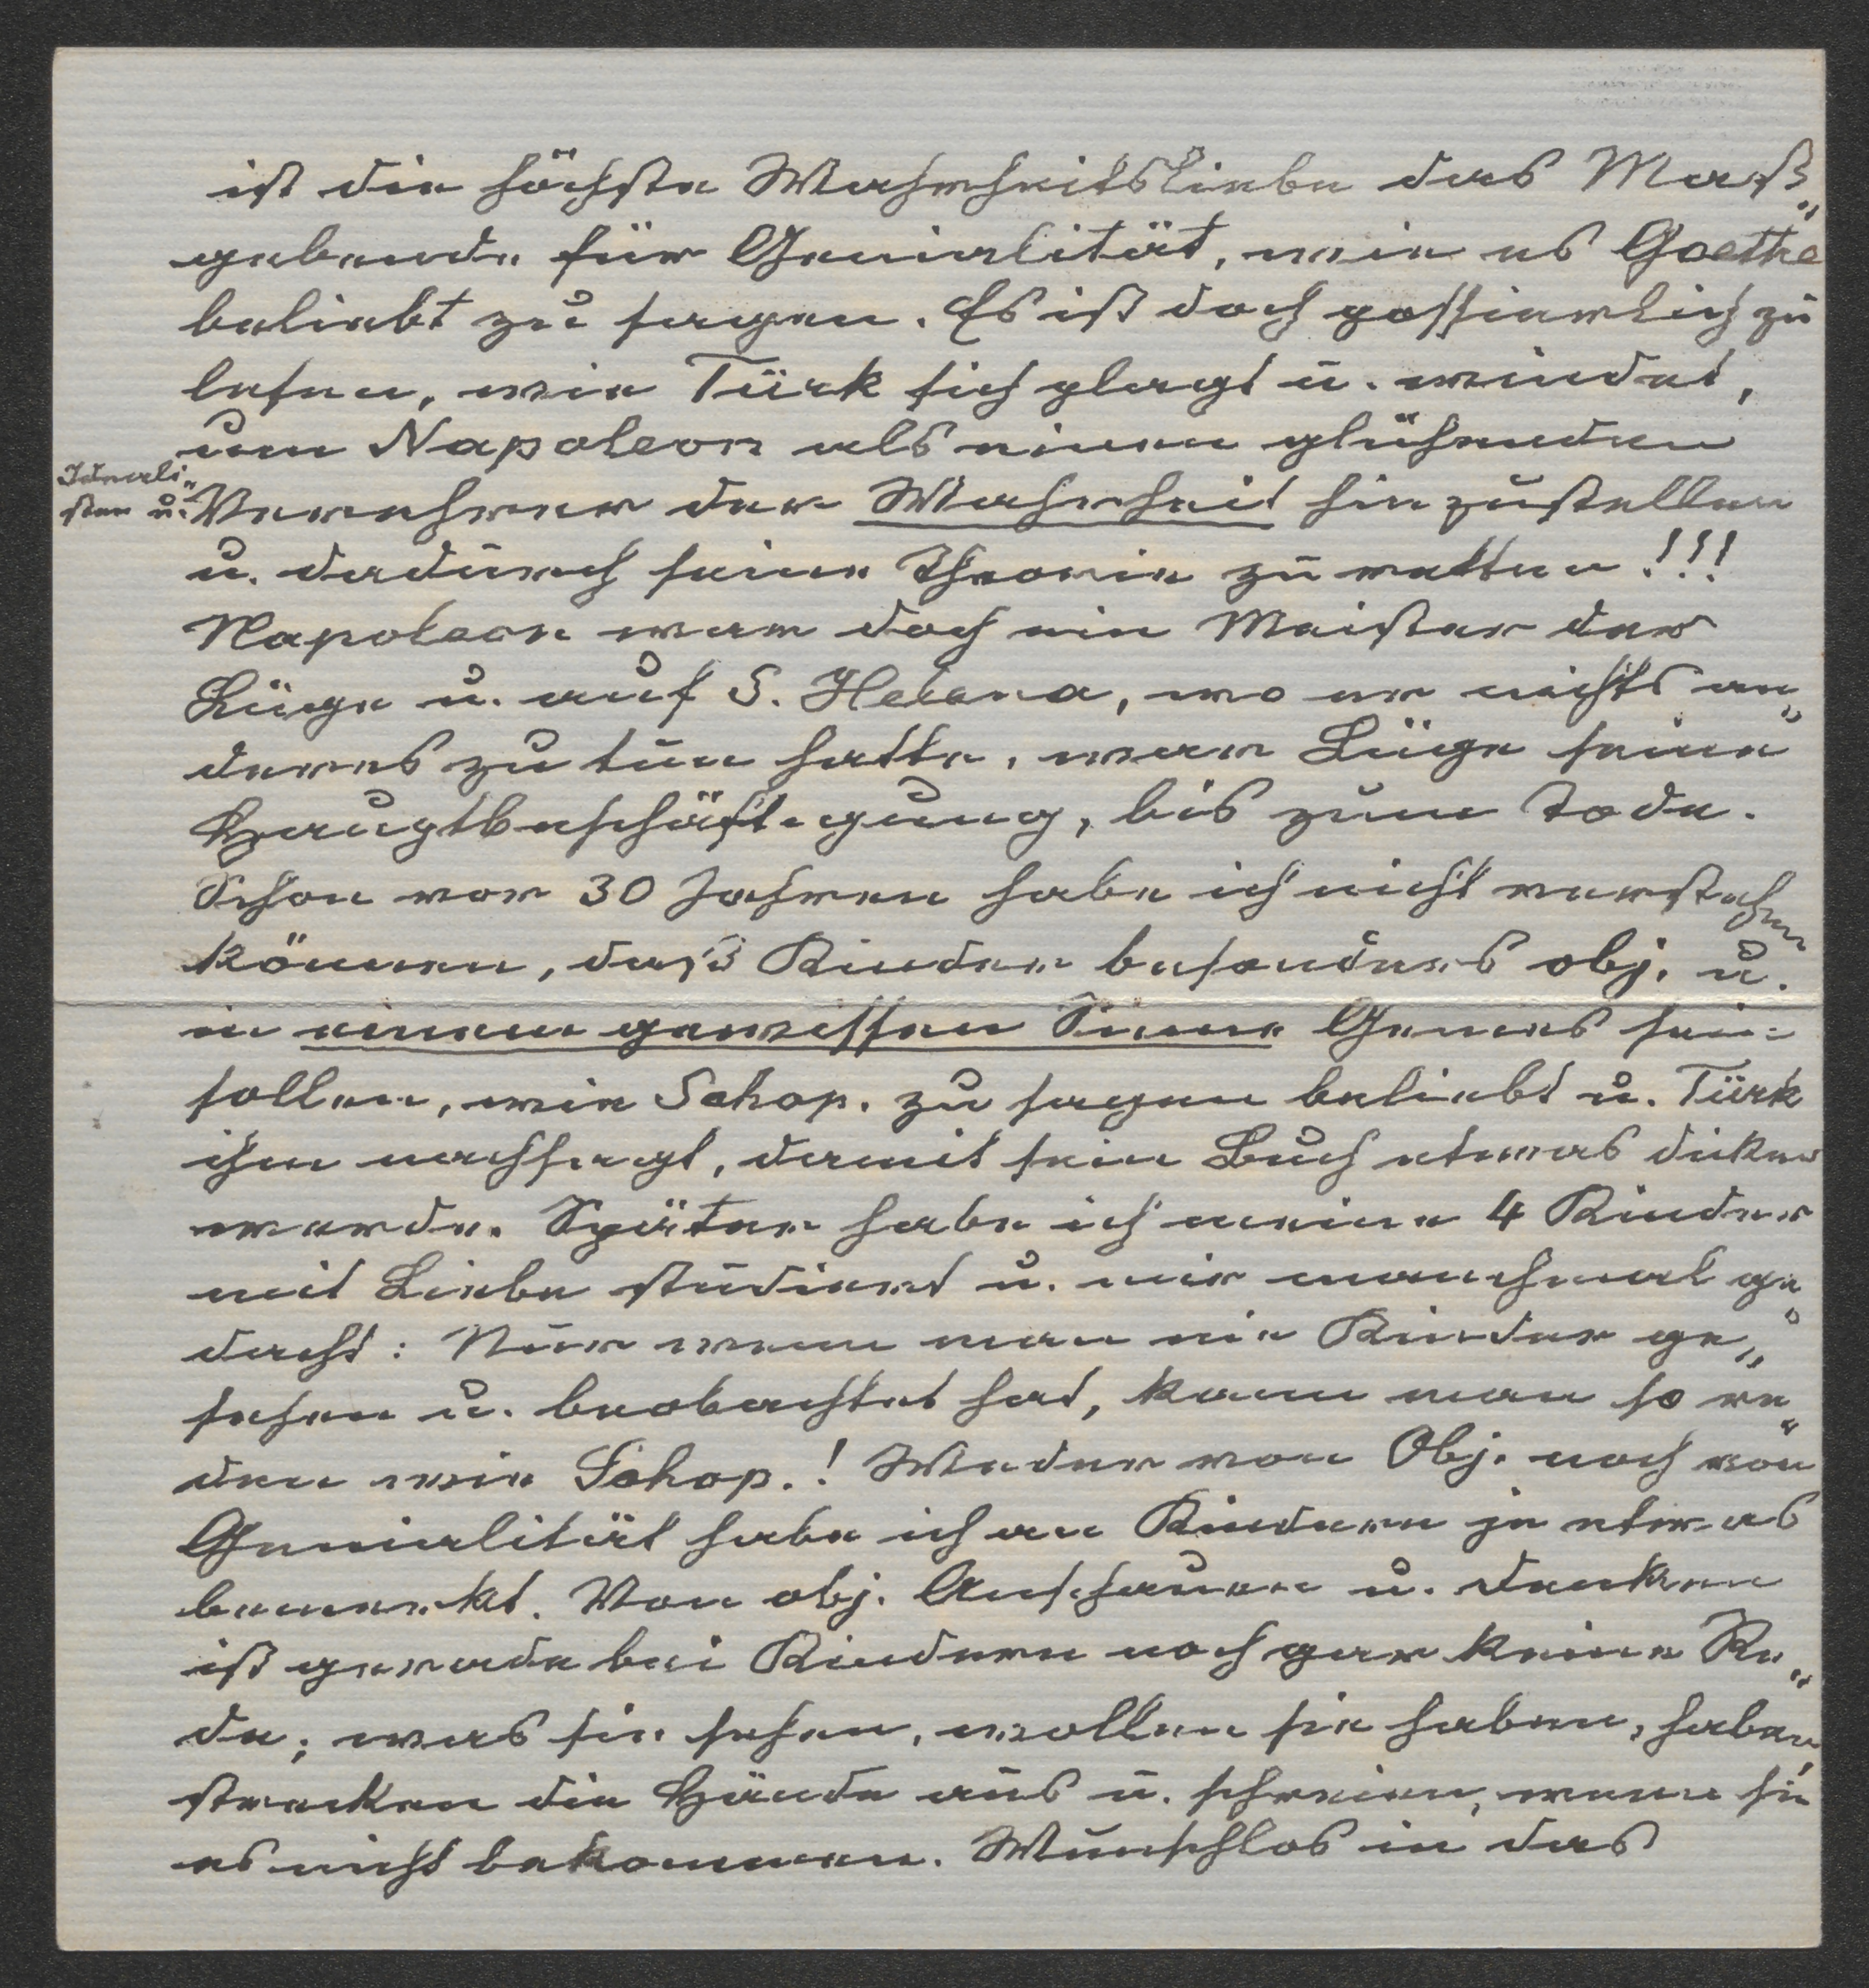 ist die höchste Wahrheitsliebe das Maß„
gebende für Genialität, wie es Goethe
beliebt zu sagen. Es ist doch possierlich zu
lesen, wie Türk sich plagt u. windet,
um Napoleon als einen glühenden
Ideali„
sten u. Verehrer der Wahrheit hinzustellen
u. dadurch seine Theorie zu retten!!!
Napoleon war doch ein Meister der
Lüge u. auf S. Helena, wo er nichts an„
deres zu tun hatte, war Lüge seine
Hauptbeschäftigung, bis zum Tode.
Schon vor 30 Jahren habe ich nicht verstehen
können, daß Kinder besonders obj. u.
in einem gewissen Sinne Genies sein
sollen, wie Schop. zu sagen beliebt u. Türk
ihm nachsagt, damit sein Buch etwas diker
werde. Später habe ich meine 4 Kinder
mit Liebe studiert u. mir manchmal ge„
dacht: Nur wenn man nie Kinder ge„
sehen u. beobachtet hat, kann man so re„
den wie Schop.! Weder von Obj. noch von
Genialität habe ich an Kindern je etwas
bemerkt. Von obj. Anschauen u. Denken
ist gerade bei Kindern noch gar keine Re„
de; was sie sehen, wollen sie haben, haben,
strecken die Hände aus u. schreien, wenn sie
es nicht bekommen. Wunschlos in das